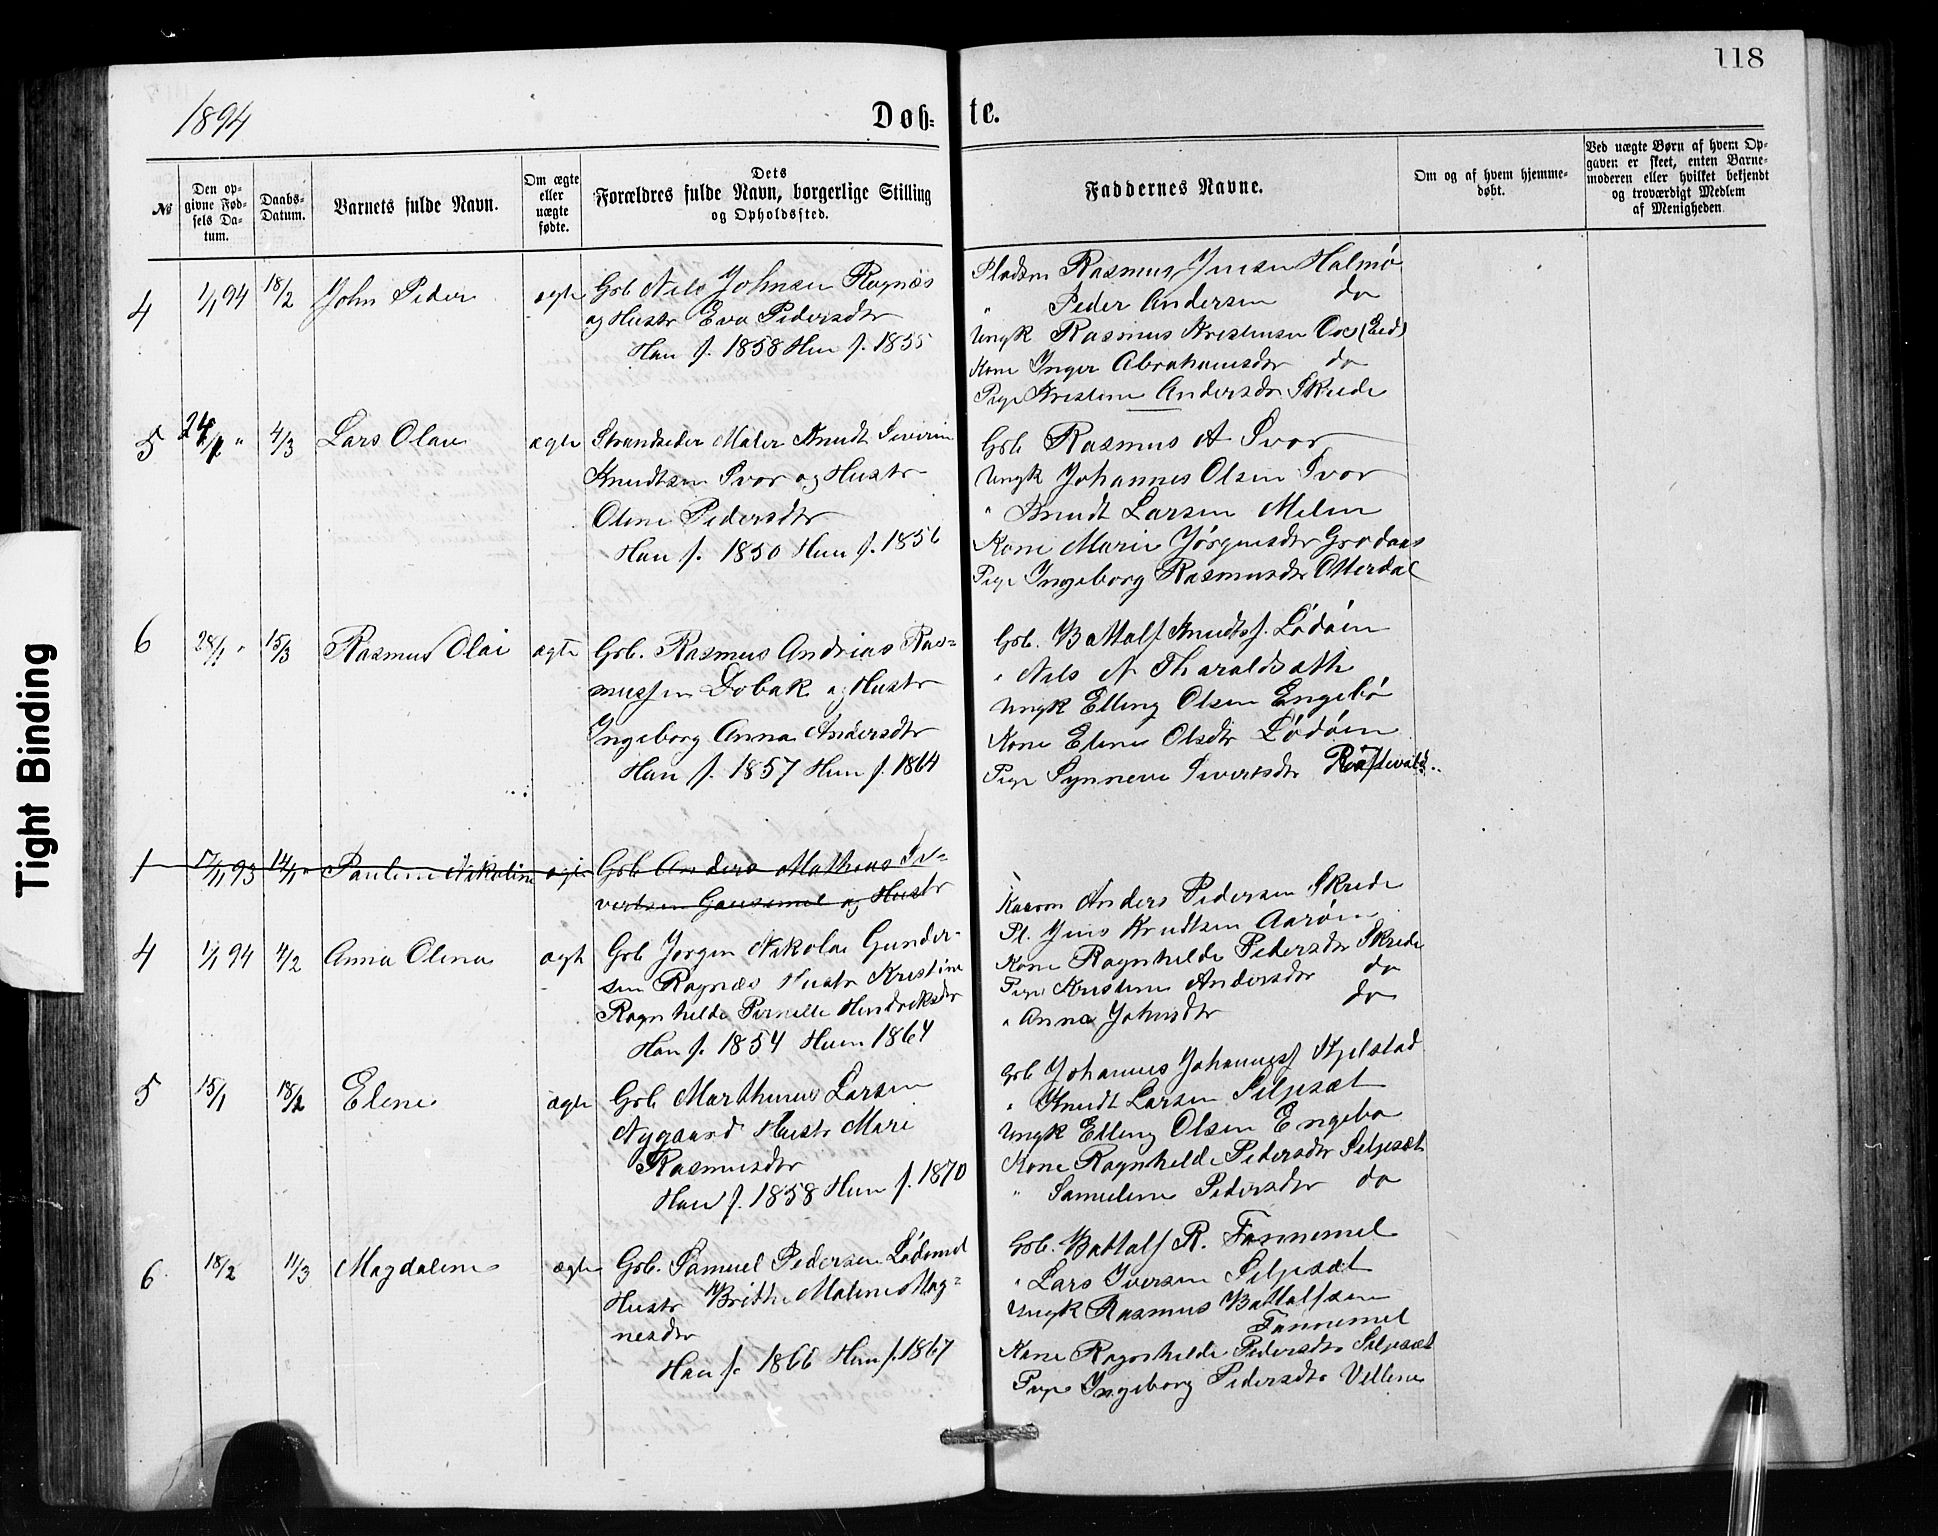 118
1894
Døb= te.
No
Den op-
givne Fød-
sels Da-
tum.
Daabs-
Datum.
Barnets fulde Navn.
Om ægte
eller
uægte
fødte.
Dets
Forældres fulde Navn, borgerlige Stilling
og Opholdssted.
Faddernes Navne.
Om og af hvem hjemme-
døbt.
Ved uægte Børn af hvem Op-
gaven er skeet, enten Barne-
moderen eller hvilket bekjendt
og troværdigt Medlem
af Menigheden.
4 1/1 94 18/2 John Peder ægte Gsb Nils Johnsen Ragnæs
og Hustr Eva Pedersdtr
Han f. 1858 Hun f. 1855
Pladsm Rasmus Jensen Halmø
" Peder Andersen do
Ungk Rasmus Kristensen Oxe (Eid)
Kone Inger Abrahamsdtr do
Pige Kristine Andersdtr Skrede
5 24/1 " 4/3 Lars Olav ægte Strandsider Maler Knudt Severin
Knudtsen Svor og Hustr
Oline Pedersdtr
Han f. 1850 Hun f. 1856
Gsb Rasmus A Svor
Ungk Johannes Olsen Svor
" Knudt Larsen Melen
Kone Marie Jørgensdtr Grodaas
Pige Ingeborg Rasmusdtr Otterdal
6 28/1 " 15/3 Rasmus Olai ægte Gsb. Rasmus Andrias Ras=
mussen Dobak og Hustr
Ingeborg Anna Andersdtr
Han f. 1857 Hun f. 1864
Gsb. Battolf Knudts. Lødøen
" Nils N Tharaldsæth
Ungk Elling Olsen Engebø
Kone Eline Olsdtr Lødøen
Pige Synneve Sivertsdtr
1 17/11 93 14/1 " Pauline Nikoline ægte Gsb Anders Mathias Si=
vertsen Gausemel og Hustr
4 1/1 94 4/2 Anna Olena ægt Gsb Jørgen Nikolai Gunder-
sen Ragnæs Hustr Kristine
Ragnhilde Pernille Hendriksdtr
Han f. 1854 Hun 1864
Anders Pedersen Skrede
Pl. Jens Knudtsen Aarøen
Kone Ragnhilde Pedersdtr Skrede
Pige Kristine Andersdtr do
" Anna Johnsdtr do
5 15/1 18/2 Eline ægte Gsb Marthinus Larsen
Nygaard Hustr Mari
Rasmusdtr
Han f. 1858 Hun f. 1870
Gsb Johannes Johannesf Kjelstad
" Knudt Larsen Siljesæt
Ungk Elling Olsen Engebø
Kone Ragnhilde Pedersdtr Siljesæt
" Samueline Pedersdtr do
6 18/2 11/3 Magdaline ægte Gsb. Samuel Pedersen Lødemel
Hustr Brithe Maline Mag=
nesdtr
Han f. 1866 Hun f. 1867
Gsb. Battolf R. Fannemel
" Lars Iversen Siljesæt
Ungk Rasmus Battolfsen
Fannemel
Kone Ragnhilde Pedersdtr Siljesæt
Pige Ingeborg Pedersdtr Vellene
Tight Binding